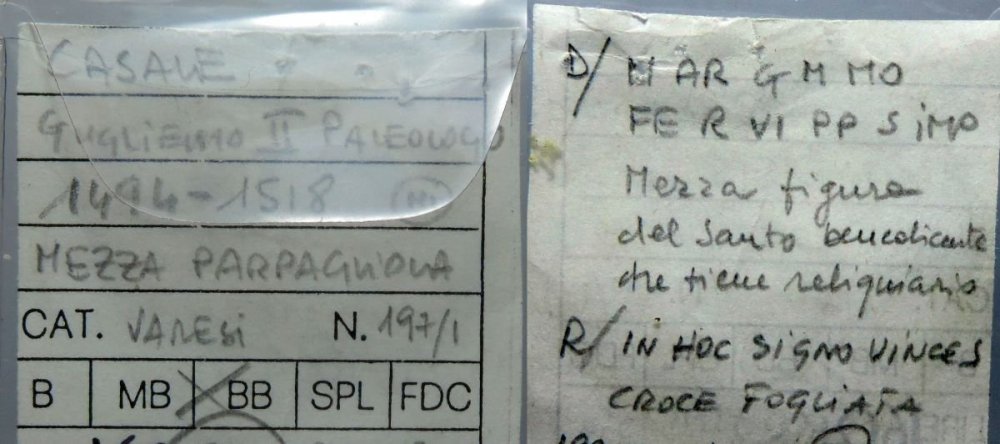 CASALE
GUGLIELMO II PALEOLOGO
1494-1518
MEZZA PARPAGLIOLA
CAT. VARESI N. 197/1
B MB BB SPL FDC
D/ MAR G M MO
FE R VI PP S iMP
Mezza figura
del santo benedicente
che tiene reliquiario
R/ IN HOC SIGNO VINCES
CROCE FOGLIATA